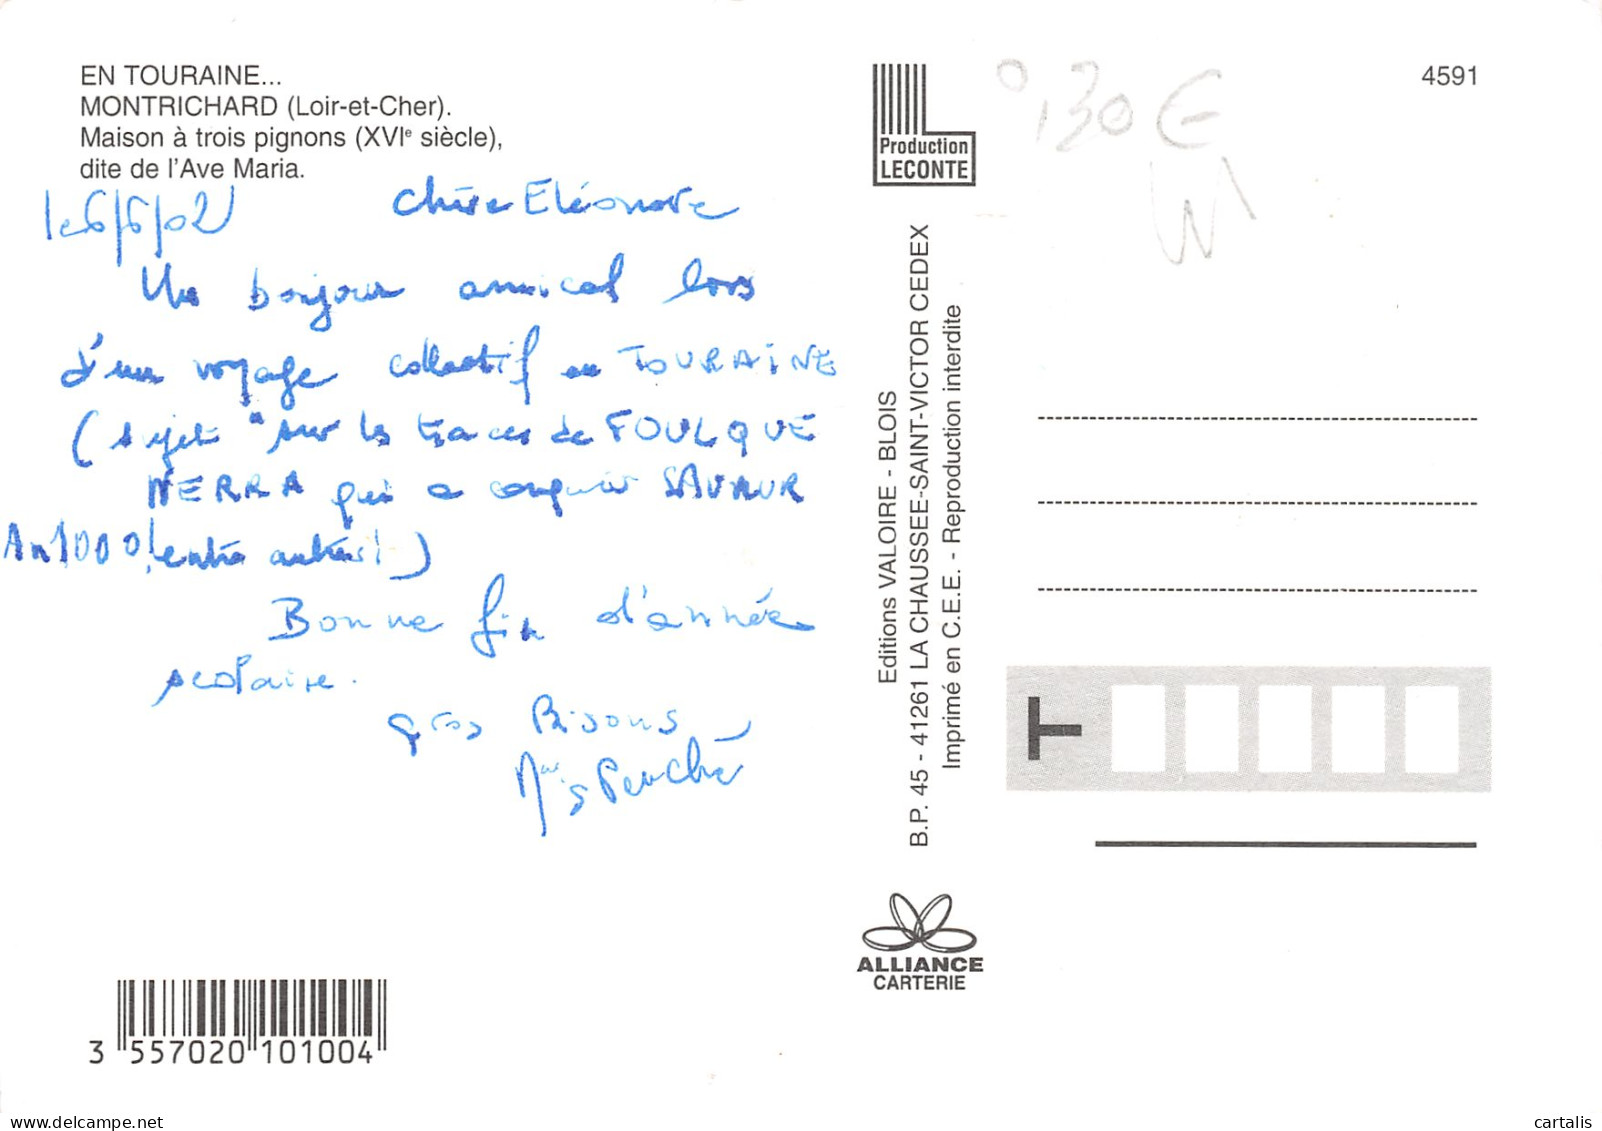 EN TOURAINE...
MONTRICHARD (Loir-et-Cher).
Maison à trois pignons (XVIe siècle),
dite de l'Ave Maria.
le 6/6/02
Chère Eléonore
Un bonjour amical lors
d'un voyage collectif en TOURAINE
(sujet "sur les traces de FOULQUE
NERRA qui a conquis SAUMUR
An 1000! entre autres!)
Bonne fin d'année
scolaire.
gros Bisous
Production
LECONTE
0,30 €
4591
Editions VALOIRE - BLOIS
B.P. 45 - 41261 LA CHAUSSEE-SAINT-VICTOR CEDEX
Imprimé en C.E.E. - Reproduction interdite
T
ALLIANCE
CARTERIE
3 557020 101004
cartalis
delcampe.net